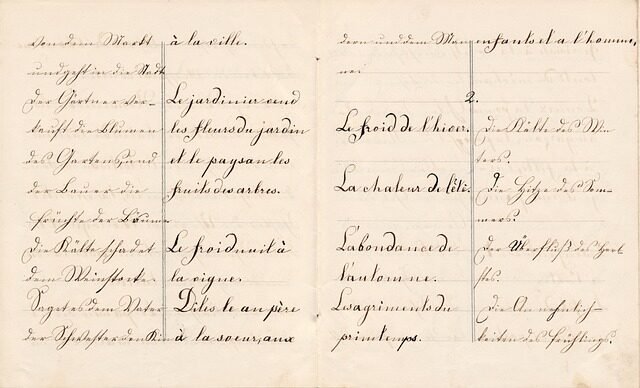 von dem Markt
und geht in die Stadt
Der Gärtner ver-
kauft die Blumen
des Gartens, und
der Bauer die
Früchte der Bäume
Die Kälte schadet
dem Weinstocke.
Saget es dem Vater
der Schwester den Kin
à la ville.
Le jardinier vend
les fleurs du jardin
et le paysan les
fruits des arbres.
Le froid nuit à
la vigne.
Dites le au père
à la soeur, aux
dern und dem Man
ne.
enfants et a l'homme,
2.
Le froid de l'hiver.
La chaleur de l'été.
L'abondance de
l'automne.
Les agriments du
printemps.
Die Kälte des Win
ters.
Die Hitze des Som-
mers.
Der Überfluß des Herb
stes.
Die Annehmlich-
keiten des Frühlings.